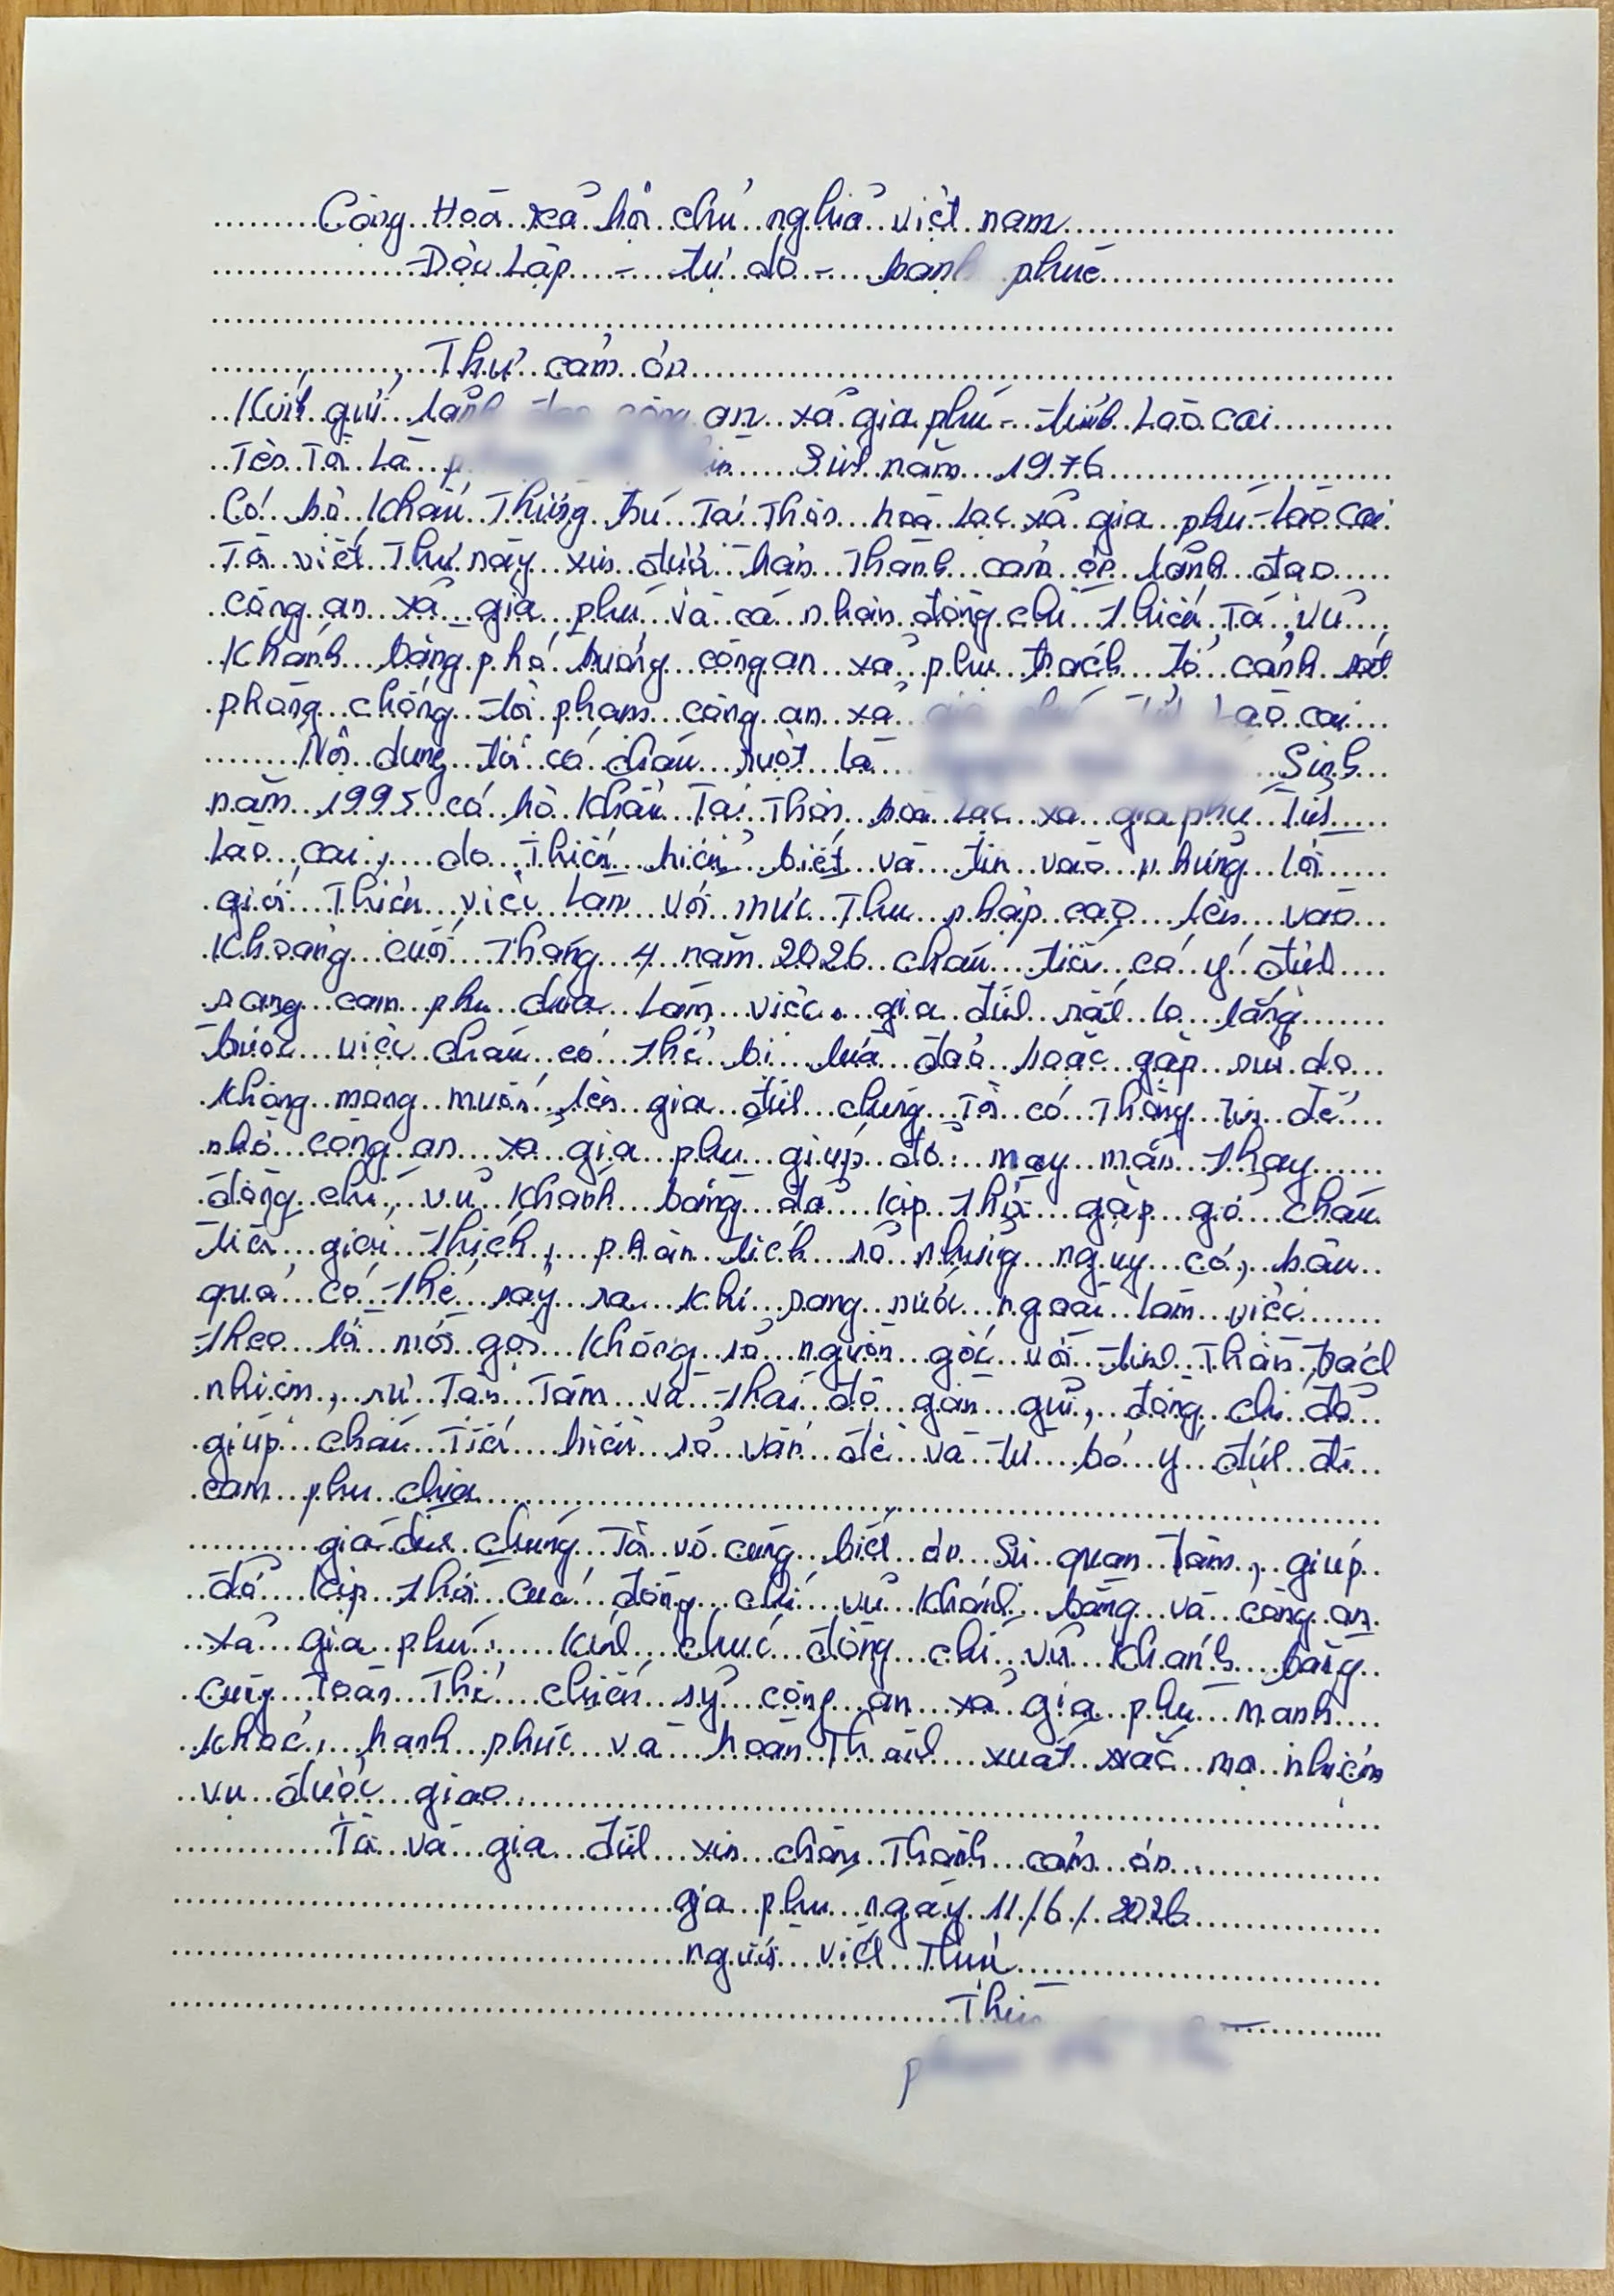 Cộng Hoà xã hội chủ nghĩa việt nam
Độc Lập - tự do - hạnh phúc
Thư cảm ơn
Kính gửi lãnh đạo công an xã gia phú - tỉnh Lào cai
Tên Tôi Là Sinh năm 1976
Có hộ khẩu Thường trú Tại Thôn hoà Lạc xã gia phú - Lào Cai
Tôi viết Thư này xin được chân Thành cảm ơn lãnh đạo
công an xã gia phú và cá nhân đồng chí Thiếu Tá Vũ
Khánh bằng phó trưởng công an xã phụ trách tổ cảnh sát
phòng chống tội phạm công an xã Lào cai
Nội dung tôi có cháu ruột là Sinh
năm 1995 có hộ khẩu Tại Thôn hoà Lạc xã gia phú Tỉnh
Lào cai, do Thiếu hiểu biết và tin vào những lời
giới Thiệu việc Làm với mức Thu nhập cao lên vào
Khoảng cuối Tháng 4 năm 2026 cháu tiến có ý định
sang cam phu chia Làm việc. gia đình rất lo lắng
trước việc cháu có thể bị lừa đảo hoặc gặp rủi do
không mong muốn, lên gia đình chúng Tôi có Thông tin để
nhờ công an xã gia phú giúp đỡ. may mắn thay
đồng chí, vũ Khánh bằng đã kịp thời gặp gỡ cháu
Tiến giải thích, phân tích rõ những nguy cơ, hậu
quả có thể sảy ra khi sang nước ngoài làm việc
theo lời mời gọi không rõ nguồn gốc với tinh Thần trách
nhiệm, sự Tận Tâm và thái độ gần gũi, đồng chí đã
giúp cháu Tiến hiểu rõ vấn đề và từ bỏ ý định đi
cam phu chia
gia đình chúng Tôi vô cùng biết ơn Sự quan Tâm, giúp
đỡ kịp thời của đồng chí vũ Khánh bằng và công an
xã gia phú. Kính chúc đồng chí vũ Khánh bằng
cùng Toàn Thể chiến sỹ công an xã gia phú mạnh
khoẻ, hạnh phúc và hoàn Thành xuất xắc mọi nhiệm
vụ được giao
Tôi và gia đình xin chân Thành cảm ơn
gia phú ngày 11/6/2026
người viết Thư